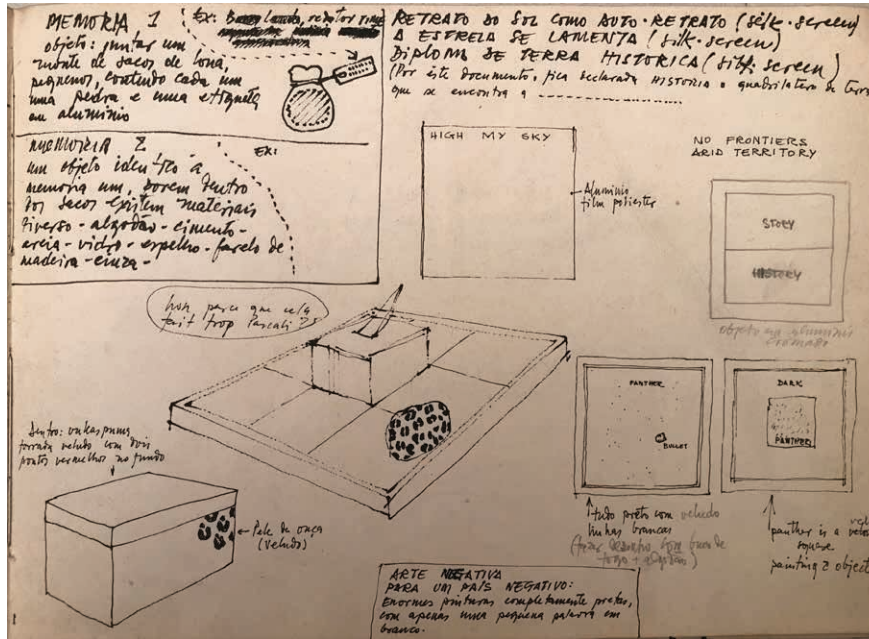 MEMORIA 1
objeto: juntar um
monte de sacos de lona,
pequenos, contendo cada um
uma pedra e uma etiqueta
em aluminio
Ex:
MEMORIA 2
um objeto identico a
memoria um, porem dentro
dos sacos existem materiais
diverso - algodão - cimento -
areia - vidro - espelho - farelo de
madeira - cinza -
Ex:
RETRATO DO SOL COMO AUTO-RETRATO (silk-screen)
A ESTRELA SE LAMENTA (silk-screen)
DIPLOMA DE TERRA HISTORICA (silk-screen)
(Por êste documento, fica declarada HISTORICA o quadrilatero de terra
que se encontra a
HIGH MY SKY
Aluminio
film poliester
NO FRONTIERS
ARID TERRITORY
STORY
HISTORY
objeto em aluminio
cromado
non, parce que cela
fait trop Pascali ??
Dentro:
forrada veludo com dois
pontos vermelhos no fundo
Pele de onça
(veludo)
PANTHER
BULLET
tudo prêto com veludo
linhas brancas
DARK
PANTHER
panther is a
square
painting & object
ARTE NEGATIVA
PARA UM PAÍS NEGATIVO:
Enormes pinturas completamente pretas,
com apenas uma pequena palavra em
branco.